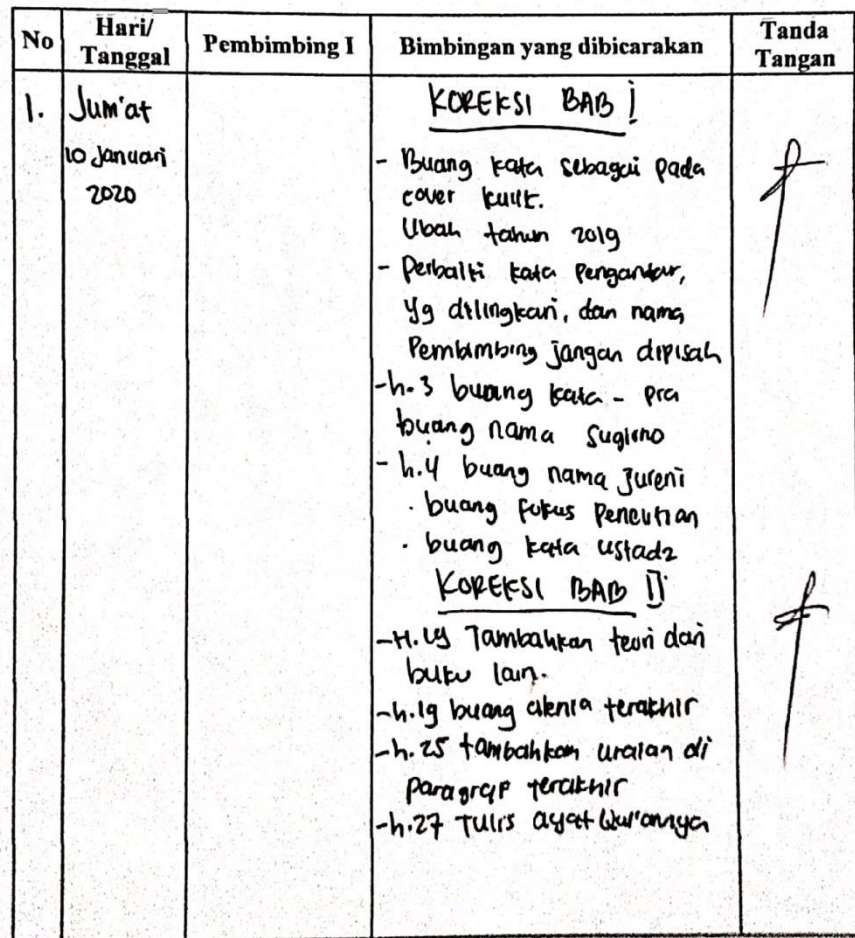 No Hari/ Tanggal Pembimbing I Bimbingan yang dibicarakan Tanda Tangan
1. Jum'at
10 Januari
2020
KOREKSI BAB I
- Buang kata sebagai pada
cover kulit.
Ubah tahun 2019
- Perbaiki kata Pengantar,
Yg dilingkari, dan nama
Pembimbing jangan dipisah
-h.3 buang kata - pra
buang nama Sugirno
- h.4 buang nama Jureni
. buang fokus Penelitian
. buang kata ustadz
KOREKSI BAB II
-H. Tambahkan teori dari
buku lain.
-h.19 buang alenia terakhir
-h.25 tambahkan uraian di
paragraf terakhir
-h.27 Tulis ayat Qur'annya